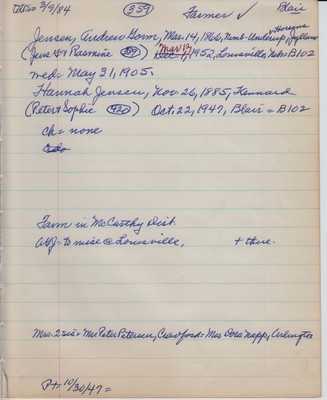 2/9/84 359 Farmer ✓ Blair
Jensen, Andrew Horm, Mar. 14, 1866, Horsens
(Jens 491 Rasmine 389) Mar 13, 1952, Louisville, Nebr. B102
wed = May 31, 1905.
Hannah Jensen, Nov. 26, 1885, Kennard
(Peter & Sophie 420) Oct. 22, 1947, Blair = B102
ch = none
Farm in McCarthy Dist.
to niece @ Louisville, + there.
Mrs. 2 sis = Mrs Peter Petersen, Crawford = Mrs Dora Napp, Arlington
Pt = 10/30/47 =